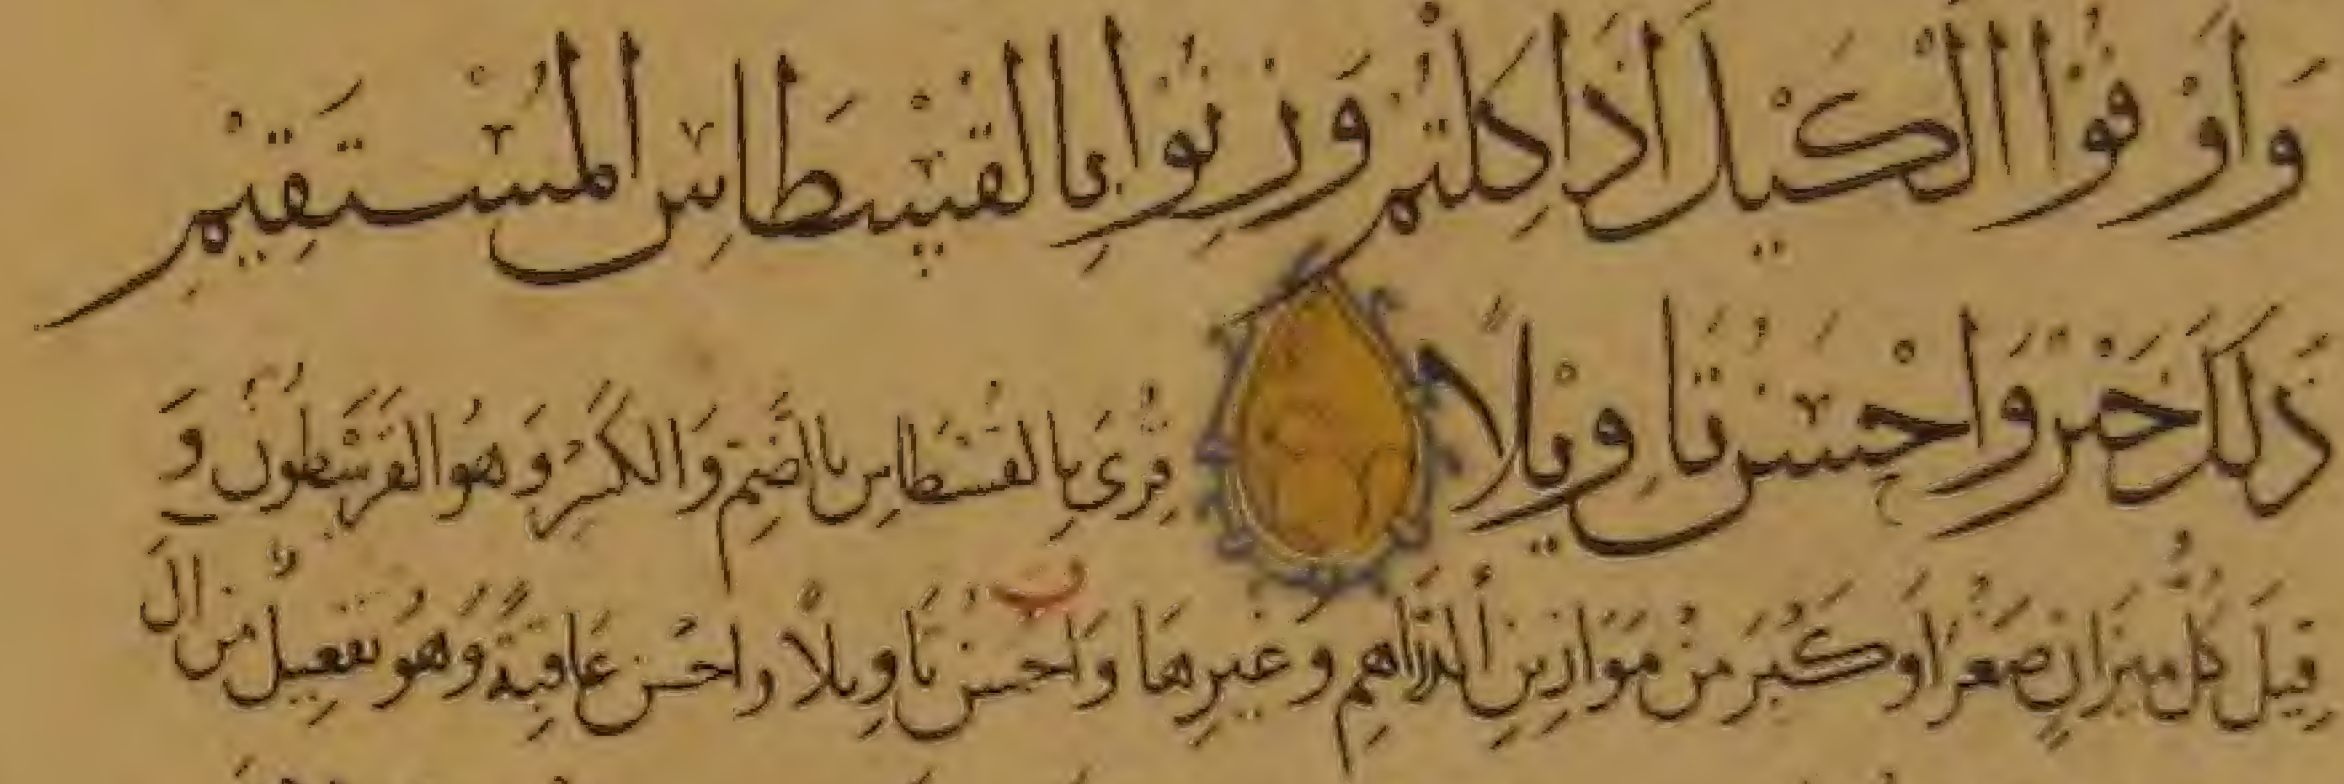 وَأَوْفُوْا الْكَيْلَ اِذَا كِلْتُمْ وَزِنُوْا بِالْقِسْطَاسِ الْمُسْتَقِيْمِ
ذَلِكَ خَيْرٌ وَاَحْسَنُ تَاْوِيْلًا قُرِىَ بِالقُسْطَاسِ بِالضَّمِ وَالكَسْرِ وَهُوَ القَرَسْطُونُ وَ
قِيلَ كُلُّ مِيزَانٍ صَغُرَ اَو كَبُرَ مِنْ مَوَازِينِ الدَّرَاهِمِ وَغَيرِهَا وَاَحسَنُ تَاوِيلًا واحسَن عَاقِبَةً وَهُوَ تفعِيلٌ من ال